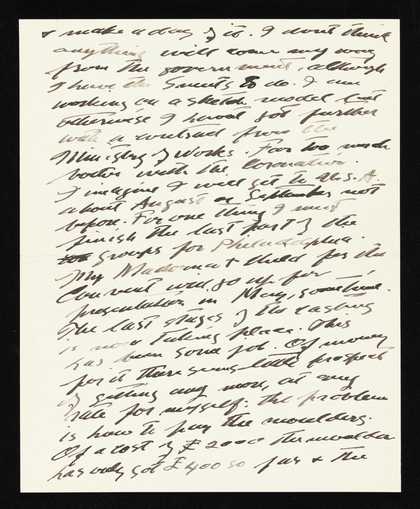 & make a day of it. I don't think
anything will come my way
from the government, although
I have the Smuts to do. I am
working on a sketch model but
otherwise I havent got further
with a contract from the
Ministry of Works. Far too much
bother with the Coronation.
I imagine I will get to U.S.A.
about August or September not
before. For one thing I must
finish the last part of the
groups for Philadelphia.
My Madonna & Child for the
Convent will go up for
presentation in May, sometime.
The last stages of the casting
is now taking place. This
has been some job. Of money
for it there seems little prospect
of getting any more, at any
rate for myself. The problem
is how to pay the moulders.
Of a cost of £2000 the moulder
has only got £400 so far & the